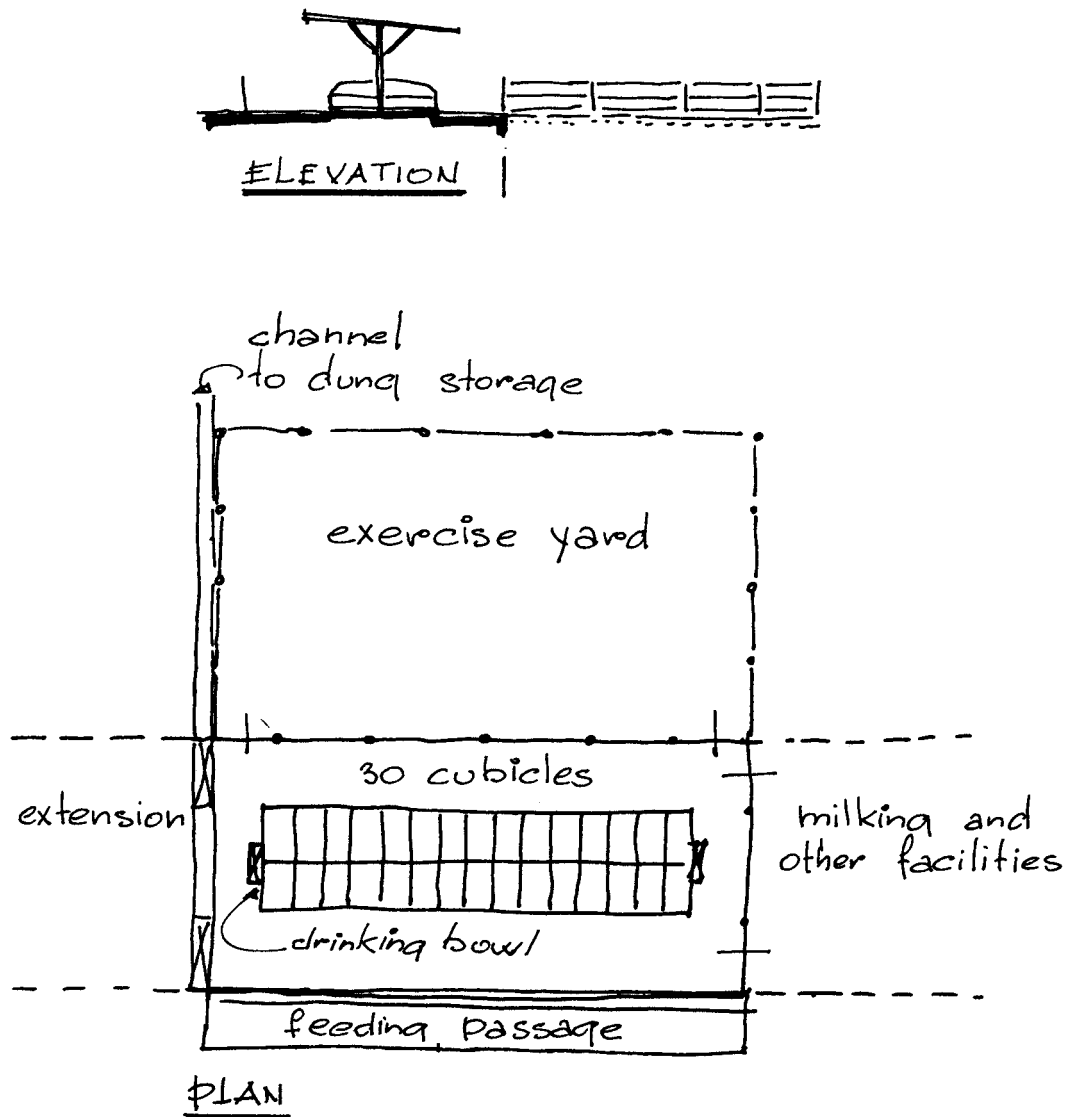 ELEVATION
channel
to dung storage
exercise yard
30 cubicles
extension
milking and
other facilities
drinking bowl
feeding passage
PLAN